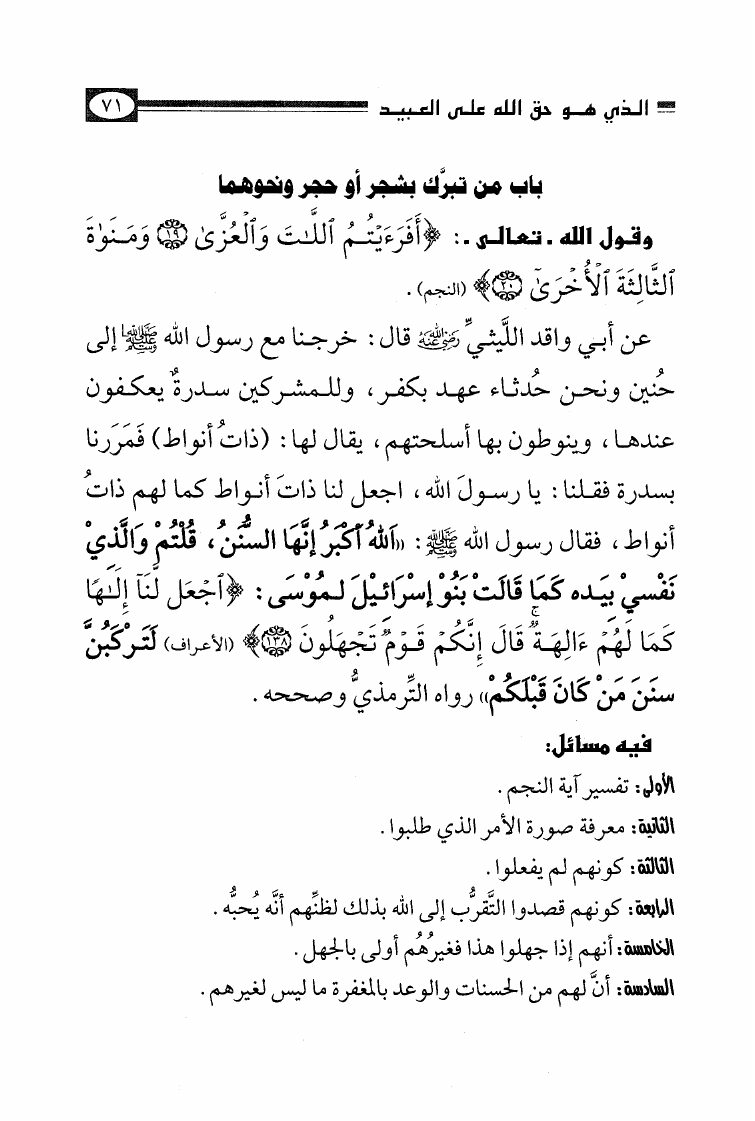 الذي هو حق الله على العبيد ٧١
باب من تبرَّك بشجر أو حجر ونحوهما
وقول الله . تعالى .: ﴿أَفَرَءَيْتُمُ ٱللَّٰتَ وَٱلْعُزَّىٰ ١٩ وَمَنَوٰةَ
ٱلثَّالِثَةَ ٱلْأُخْرَىٰٓ ٢٠﴾ (النجم) .
عن أبي واقد اللَّيثيِّ رضي الله عنه قال: خرجنا مع رسول الله ﷺ إلى
حُنين ونحن حُدثاء عهد بكفر، وللمشركين سدرةٌ يعكفون
عندها، وينوطون بها أسلحتهم، يقال لها: (ذاتُ أنواط) فمَرَرنا
بسدرة فقلنا: يا رسولَ الله، اجعل لنا ذاتَ أنواط كما لهم ذاتُ
أنواط، فقال رسول الله ﷺ: «اَللهُ أَكْبَرُ إِنَّهَا السُّنَنُ، قُلْتُمْ وَالَّذِيْ
نَفْسِيْ بِيَدِه كَمَا قَالَتْ بَنُوْ إِسْرَائِيْلَ لِمُوْسَى: ﴿ٱجْعَل لَّنَآ إِلَٰهًا
كَمَا لَهُمْ ءَالِهَةٌ ۚ قَالَ إِنَّكُمْ قَوْمٌ تَجْهَلُونَ ١٣٨﴾ (الأعراف) لَتَرْكَبُنَّ
سَنَنَ مَنْ كَانَ قَبْلَكُمْ» رواه التِّرمذيُّ وصححه .
فيه مسائل:
الأولى: تفسير آية النجم .
الثانية: معرفة صورة الأمر الذي طلبوا .
الثالثة: كونهم لم يفعلوا .
الرابعة: كونهم قصدوا التَّقرُّب إلى الله بذلك لظنِّهم أنَّه يُحبُّه .
الخامسة: أنهم إذا جهلوا هذا فغيرُهُم أولى بالجهل .
السادسة: أنَّ لهم من الحسنات والوعد بالمغفرة ما ليس لغيرهم .